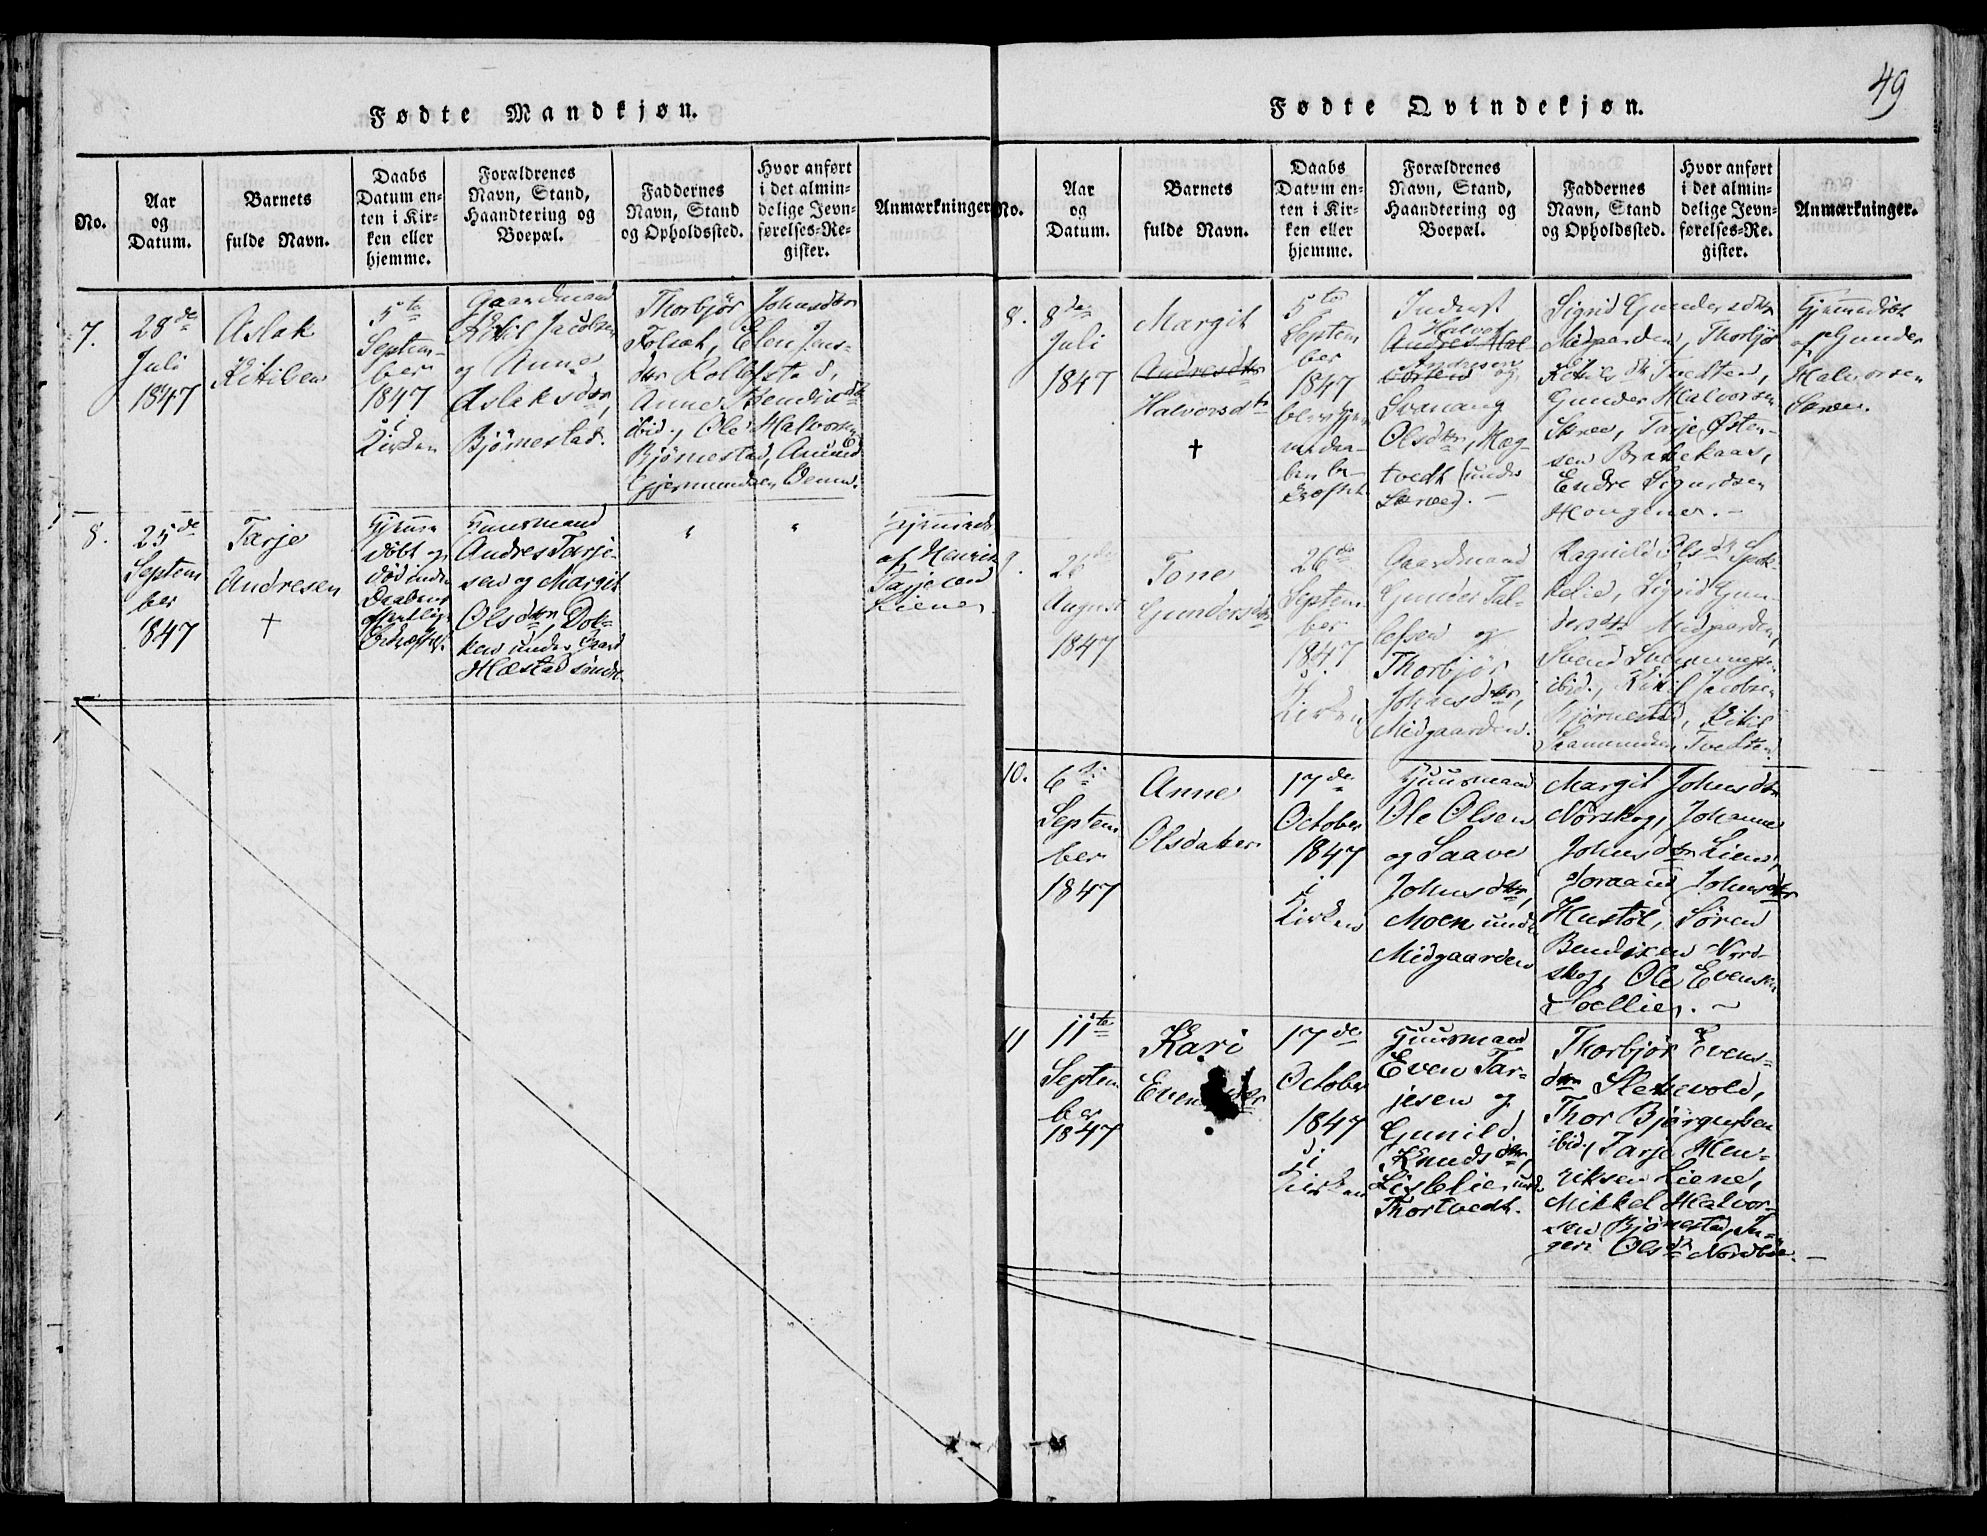 49
Fødte Mandkjøn.
No.
Aar
og
Datum.
Barnets
fulde Navn.
Daabs
Datum en-
ten i Kir-
ken eller
hjemme.
Forældrenes
Navn, Stand,
Haandtering og
Boepæl.
Faddernes
Navn, Stand
og Opholdssted.
Hvor anført
i det almin-
delige Jevn-
førelses-Re-
gister.
Anmærkninger
7.
28de
Juli
1847
Aslak
Kitilsen
5te
Septem-
ber
1847
i
Kirken
Gaardmand
Kitil Jacobsen
og Anne
Aslaksdtr,
Bjørnestad.
Thorbjør Johnsdtr
Folsæt, Elen Jens-
dtr Kolofstad,
Anne Bendixdtr
ibid., Ole Halvorsen
Bjørnestad, Amund
Gjermundsen
8.
25de
Septem
ber
1847
Tarje
Andresen
†
Hjemme
døbt og
død inden
Daabens
offentlige
Huusmand
Andres Tarje-
sen og Margit
Olsdtr, Dok-
ken under Gaard
Hæstad søndre
"
"
Hjemmedøbt
af Henrik
Tarjesen
Liene.
Fødte Qvindekjøn.
No.
Aar
og
Datum.
Barnets
fulde Navn.
Daabs
Datum en-
ten i Kir-
ken eller
hjemme.
Forældrenes
Navn, Stand,
Haandtering og
Boepæl.
Faddernes
Navn, Stand
og Opholdssted.
Hvor anført
i det almin-
delige Jevn-
førelses-Re-
gister.
Anmærkninger.
8.
8de
Juli
1847
Margit
Andresdtr
Halvorsdtr
†
5te
Septem
ber
1847
blev Hjem
medaa-
ben be-
kræftet
Inderst
Halvor
Andres Hal
Andresen
vorsen og
Svanaug
Olsdtr, Hæg-
tvedt (under
Sigrid Gundersdtr
Midgaarden, Thorbjør
Kitilsdtr Tvedten,
Gunder Halvorsen
Tarje Østen-
sen Brekkaas,
Endre Sigurdsen
Haugene. -
Hjemmedøbt
af Gunder
Halvorsen
9.
August
1847
Tone
Gundersdtr
26de
Septem
ber
1847
i
Kirken
Gaardmand
Gunder Tal-
lefsen og
Thorbjør
Johnsdtr,
Midgaarden.
Ragnild Olsdtr
Sigrid Gun-
dersdtr Midgaarden,
Svend Svennungs.
ibid., Kitil Jacobsen
Bjørnestad, Kitil
Tvedten.
10.
6te
Septem
ber
1847
Anne
Olsdatter
17de
October
1847
i
Kirken
Huusmand
Ole Olsen
og Saave
Johnsdtr,
Moen under
Midgaarden
Margit Johnsdtr
Nørskog, Johanne
Johnsdtr Liene,
Joraand Johnsdtr
Hustøl, Søren
Bendixen Nord-
skog, Ole Evensen
11
11te
Septem
ber
1847
Kari
17de
October
1847
i
Kirken
Huusmand
Even Tar-
jesen og
Gunild
Knudsdtr,
Lislelie under
Thortvedt.
Thorbjør Evens-
dtr Slettevold,
Thor Bjørgulsen
ibid., Tarje Hen-
riksen Liene,
Mikkel Halvor-
sen Bjørnestad, In-
geri Olsdtr Nordbøe.